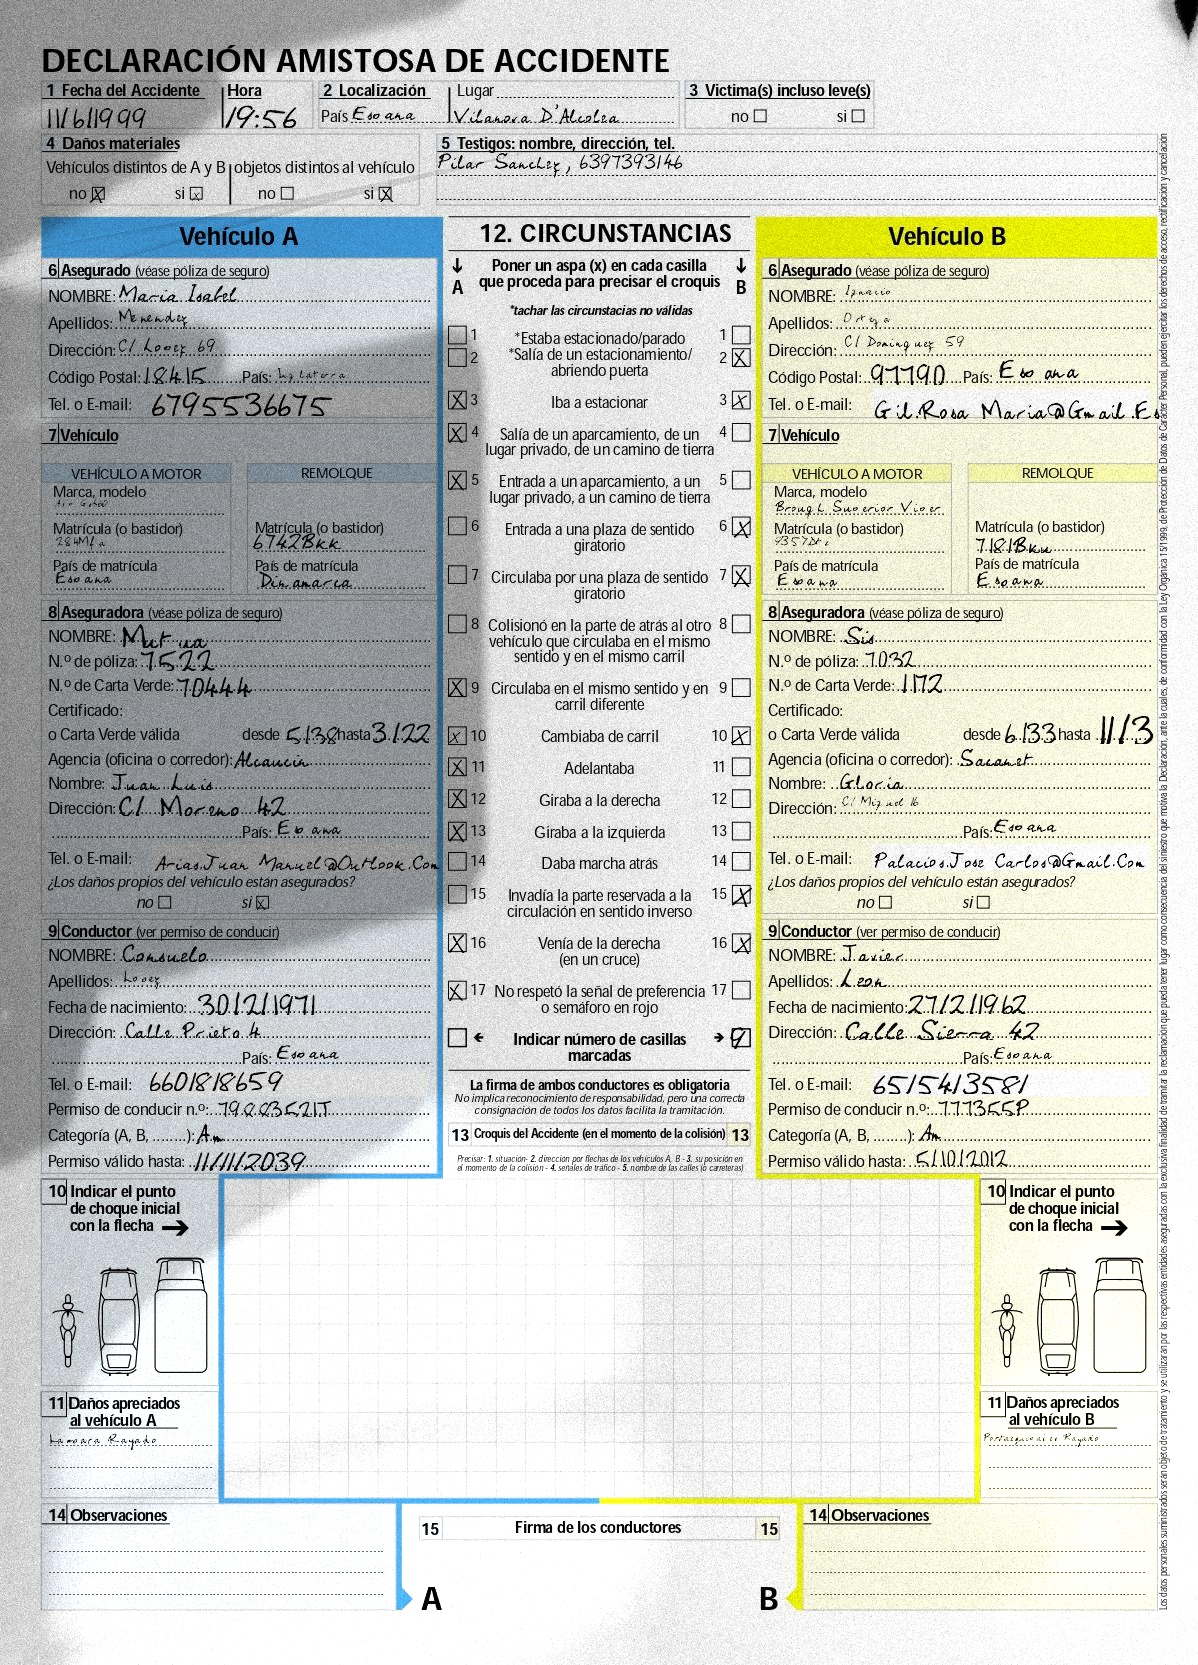 DECLARACIÓN AMISTOSA DE ACCIDENTE
1 Fecha del Accidente Hora 2 Localización Lugar 3 Victima(s) incluso leve(s)
11/6/1999 19:56 País Espana Vilanova D'Alcolea no si
4 Daños materiales 5 Testigos: nombre, dirección, tel.
Vehículos distintos de A y B objetos distintos al vehículo Pilar Sanchez, 6397393146
no X si X no si X
Vehículo A 12. CIRCUNSTANCIAS Vehículo B
6 Asegurado (véase póliza de seguro)
NOMBRE: Maria Isabel
Apellidos: Menendez
Dirección: C/ Lopez 69
Código Postal: 18415 País: Inglaterra
Tel. o E-mail: 6795536675
7 Vehículo
VEHÍCULO A MOTOR REMOLQUE
Marca, modelo
Matrícula (o bastidor) Matrícula (o bastidor)
6742Bkk
País de matrícula País de matrícula
Espana Dinamarca
8 Aseguradora (véase póliza de seguro)
NOMBRE: Mutua
N.º de póliza: 7522
N.º de Carta Verde: 70444
Certificado:
o Carta Verde válida desde 5/138 hasta 3/122
Agencia (oficina o corredor): Alcaucin
Nombre: Juan Luis
Dirección: C/ Moreno 42
País: Espana
Tel. o E-mail: Arias.Juan Manuel@Outlook.Com
¿Los daños propios del vehículo están asegurados?
no si X
9 Conductor (ver permiso de conducir)
NOMBRE: Consuelo
Apellidos: Lopez
Fecha de nacimiento: 30/2/1971
Dirección: Calle Prieto 4
País: Espana
Tel. o E-mail: 6601818659
Permiso de conducir n.º: 79883521T
Categoría (A, B, ........): Am
Permiso válido hasta: 11/11/2039
10 Indicar el punto
de choque inicial
con la flecha
11 Daños apreciados
al vehículo A
Lampara Rayado
14 Observaciones
A Poner un aspa (x) en cada casilla B
que proceda para precisar el croquis
*tachar las circunstacias no válidas
1 *Estaba estacionado/parado 1
2 *Salía de un estacionamiento/ 2 X
abriendo puerta
X 3 Iba a estacionar 3 X
X 4 Salía de un aparcamiento, de un 4
lugar privado, de un camino de tierra
X 5 Entrada a un aparcamiento, a un 5
lugar privado, a un camino de tierra
6 Entrada a una plaza de sentido 6 X
giratorio
7 Circulaba por una plaza de sentido 7 X
giratorio
8 Colisionó en la parte de atrás al otro 8
vehículo que circulaba en el mismo
sentido y en el mismo carril
X 9 Circulaba en el mismo sentido y en 9
carril diferente
X 10 Cambiaba de carril 10 X
X 11 Adelantaba 11
X 12 Giraba a la derecha 12
X 13 Giraba a la izquierda 13
14 Daba marcha atrás 14
15 Invadía la parte reservada a la 15 X
circulación en sentido inverso
X 16 Venía de la derecha 16 X
(en un cruce)
X 17 No respetó la señal de preferencia 17
o semáforo en rojo
Indicar número de casillas 9
marcadas
La firma de ambos conductores es obligatoria
No implica reconocimiento de responsabilidad, pero una correcta
consignación de todos los datos facilita la tramitación.
13 Croquis del Accidente (en el momento de la colisión) 13
Precisar: 1. situación- 2. dirección por flechas de los vehículos A, B - 3. su posición en
el momento de la colisión - 4. señales de tráfico - 5. nombre de las calles (o carreteras)
15 Firma de los conductores 15
A B
6 Asegurado (véase póliza de seguro)
NOMBRE: Ignacio
Apellidos: Ortega
Dirección: C/ Dominguez 59
Código Postal: 97790 País: Espana
Tel. o E-mail: Gil.Rosa Maria@Gmail.Es
7 Vehículo
VEHÍCULO A MOTOR REMOLQUE
Marca, modelo
Brough Superior Viper
Matrícula (o bastidor) Matrícula (o bastidor)
7181Bku
País de matrícula País de matrícula
Espana Espana
8 Aseguradora (véase póliza de seguro)
NOMBRE: Sis
N.º de póliza: 7032
N.º de Carta Verde: 1172
Certificado:
o Carta Verde válida desde 6/133 hasta 11/13
Agencia (oficina o corredor): Sacanet
Nombre: Gloria
Dirección: C/ Miguel 16
País: Espana
Tel. o E-mail: Palacios.Jose Carlos@Gmail.Com
¿Los daños propios del vehículo están asegurados?
no si
9 Conductor (ver permiso de conducir)
NOMBRE: Javier
Apellidos: Leon
Fecha de nacimiento: 27/2/1962
Dirección: Calle Sierra 42
País: Espana
Tel. o E-mail: 6515413581
Permiso de conducir n.º: 777355P
Categoría (A, B, ........): Am
Permiso válido hasta: 5/10/2012
10 Indicar el punto
de choque inicial
con la flecha
11 Daños apreciados
al vehículo B
Portaequipajes Rayado
14 Observaciones
Los datos personales suministrados serán objeto de tratamiento y se utilizarán por las respectivas entidades aseguradas con la exclusiva finalidad de tramitar la reclamación que pueda tener lugar como consecuencia del siniestro que motiva la Declaración, ante la cuales, de conformidad con la Ley Orgánica 15/1999, de Protección de Datos de Carácter Personal, pueden ejercitar los derechos de acceso, rectificación y cancelación